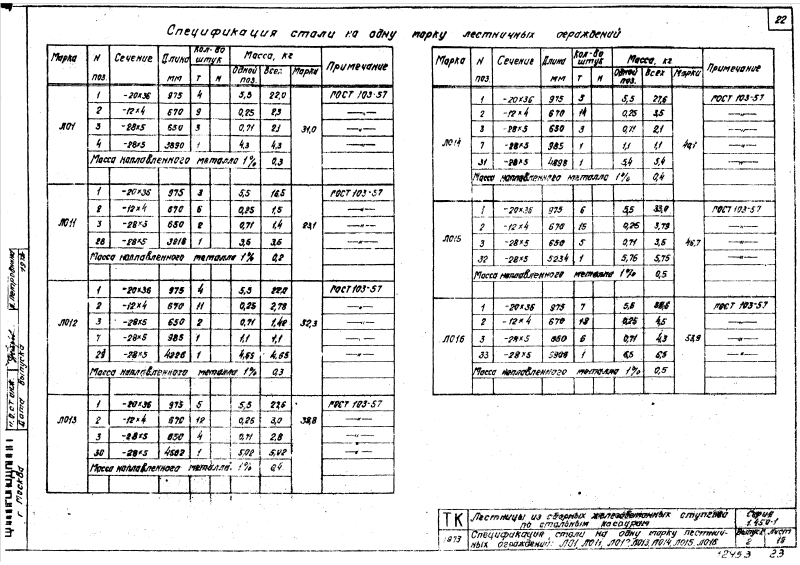 22
Спецификация стали на одну марку лестничных ограждений
Марка N поз. Сечение Длина мм Кол-во штук Т Н Масса, кг Одной поз. Всех Марки Примечание
ЛО1 31,0
1 -20×36 975 4 5,5 22,0 ГОСТ 103-57
2 -12×4 670 9 0,25 2,3 —"—
3 -28×5 650 3 0,71 2,1 —"—
4 -28×5 3890 1 4,3 4,3 —"—
Масса наплавленного металла 1% 0,3
ЛО11 23,1
1 -20×36 975 3 5,5 16,5 ГОСТ 103-57
2 -12×4 670 6 0,25 1,5 —"—
3 -28×5 650 2 0,71 1,4 —"—
28 -28×5 3218 1 3,6 3,6 —"—
Масса наплавленного металла 1% 0,2
ЛО12 32,3
1 -20×36 975 4 5,5 22,0 ГОСТ 103-57
2 -12×4 670 11 0,25 2,78 —"—
3 -28×5 650 2 0,71 1,42 —"—
7 -28×5 985 1 1,1 1,1 —"—
29 -28×5 4226 1 4,65 4,65 —"—
Масса наплавленного металла 1% 0,3
ЛО13 38,8
1 -20×36 975 5 5,5 27,6 ГОСТ 103-57
2 -12×4 670 12 0,25 3,0 —"—
3 -28×5 650 4 0,71 2,8 —"—
30 -28×5 4562 1 5,02 5,02 —"—
Масса наплавленного металла 1% 0,4
Марка N поз. Сечение Длина мм Кол-во штук Т Н Масса, кг Одной поз. Всех Марки Примечание
ЛО14
1 -20×36 975 5 5,5 27,6 ГОСТ 103-57
2 -12×4 670 14 0,25 3,5 —"—
3 -28×5 650 3 0,71 2,1 —"—
7 -28×5 985 1 1,1 1,1 —"—
31 -28×5 4898 1 5,4 5,4 —"—
Масса наплавленного металла 1% 0,4
ЛО15 46,7
1 -20×36 975 6 5,5 33,0 ГОСТ 103-57
2 -12×4 670 15 0,25 3,75 —"—
3 -28×5 650 5 0,71 3,6 —"—
32 -28×5 5234 1 5,75 5,75 —"—
Масса наплавленного металла 1% 0,5
ЛО16 53,9
1 -20×36 975 7 5,5 ГОСТ 103-57
2 -12×4 670 18 0,25 4,5 —"—
3 -28×5 650 6 0,71 4,3 —"—
33 -28×5 5908 1 6,5 6,5 —"—
Масса наплавленного металла 1% 0,5
ТК 1973
Лестницы из сборных железобетонных ступеней по стальным косоурам
Серия 1.450-1
Спецификация стали на одну марку лестничных ограждений: ЛО1, ЛО11, ЛО12, ЛО13, ЛО14, ЛО15, ЛО16
Выпуск 2 Лист 19
12453 23
г Москва
Дата выпуска